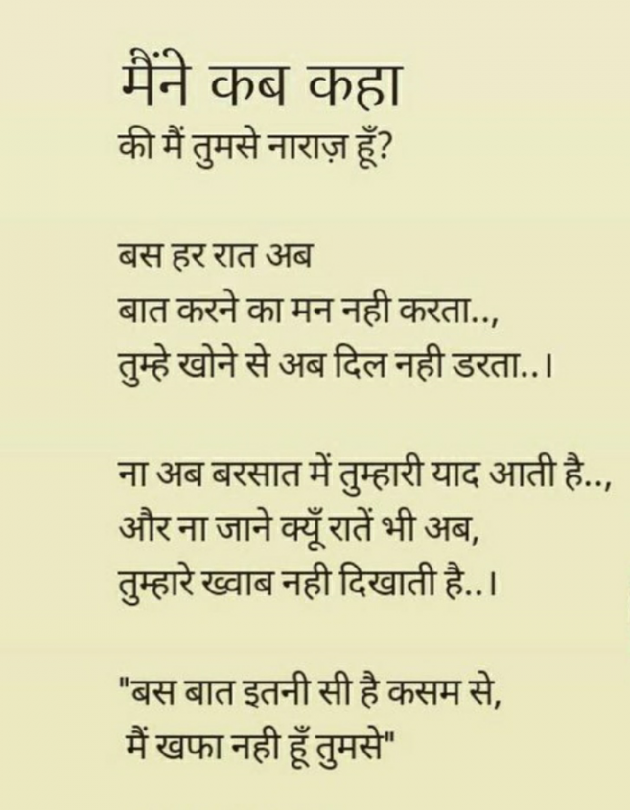 मैंने कब कहा
की मैं तुमसे नाराज़ हूँ?
बस हर रात अब
बात करने का मन नही करता..,
तुम्हे खोने से अब दिल नही डरता..।
ना अब बरसात में तुम्हारी याद आती है..,
और ना जाने क्यूँ रातें भी अब,
तुम्हारे ख्वाब नही दिखाती है..।
"बस बात इतनी सी है कसम से,
मैं खफा नही हूँ तुमसे"